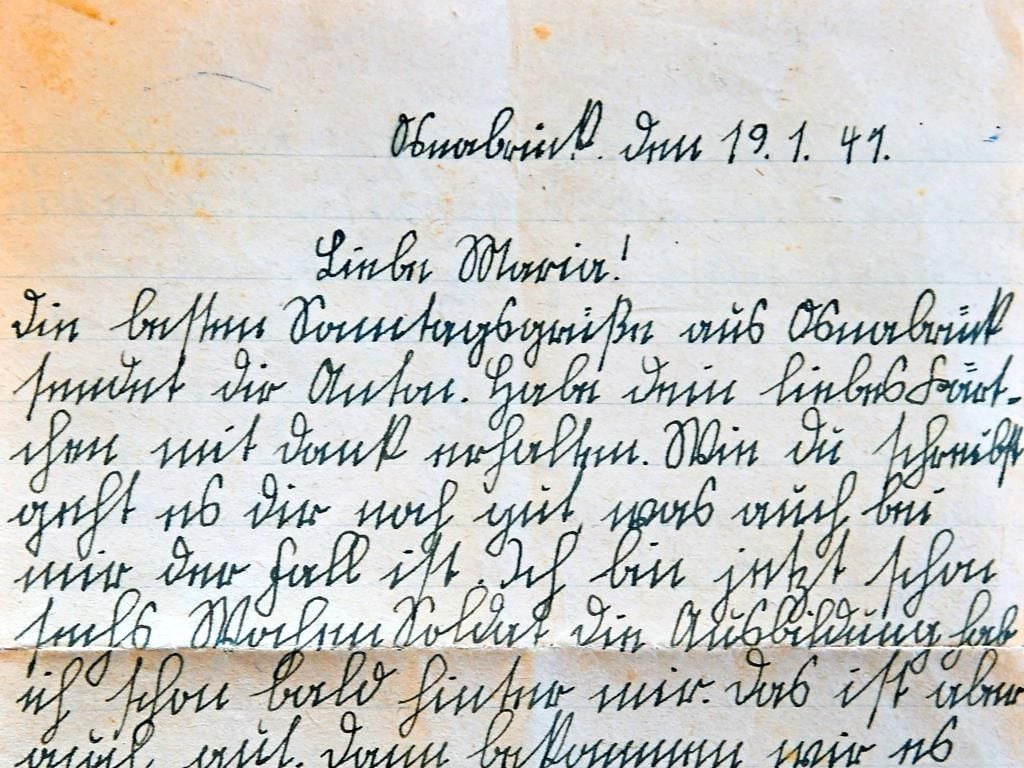 Osnabrück. den 19. 1. 41.
Liebe Maria!
Die besten Sonntagsgrüße aus Osnabrück
sendet dir Anton. Habe dein liebes Kärt-
chen mit dank erhalten. Wie du schreibst
geht es dir noch gut, was auch bei
mir der Fall ist. Ich bin jetzt schon
sechs Wochen Soldat die Ausbildung hab
ich schon bald hinter mir. Das ist aber
auch gut. Dann bekommen wir es